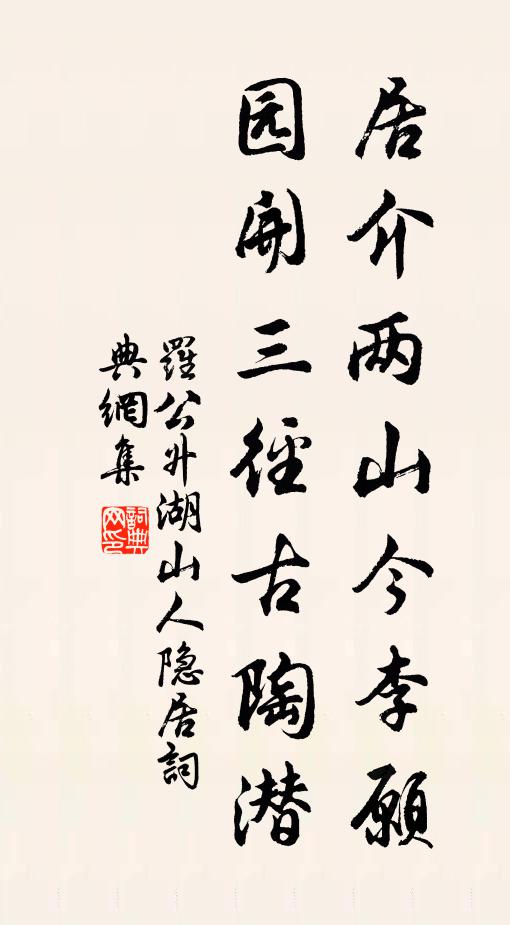 居介两山今李愿
园开三径古陶潜
羅公升湖山人隐居詞
典網集
詞典網印